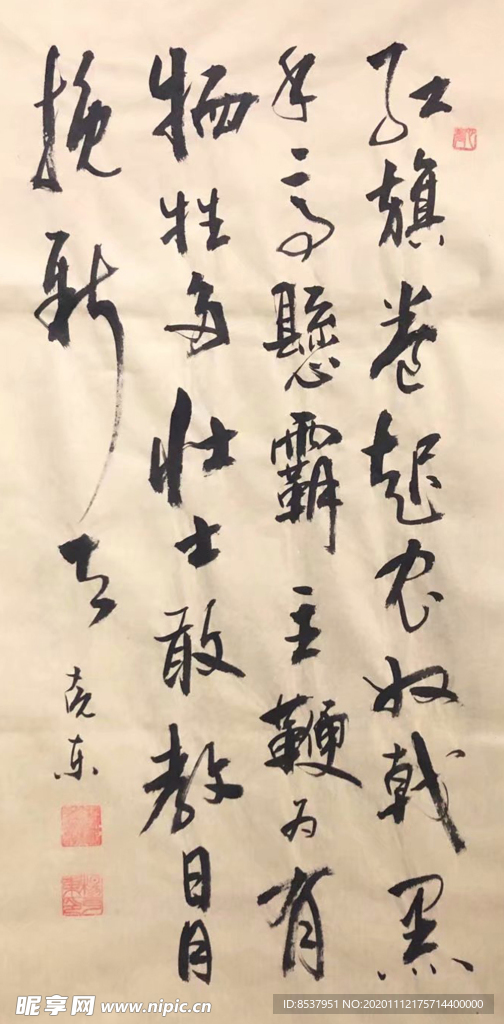 红旗卷起农奴戟黑
手高懸霸主鞭为有
牺牲多壮士敢教日月
换新天
东
昵享网 www.nipic.cn
ID:8537951 NO:20201112175714400000